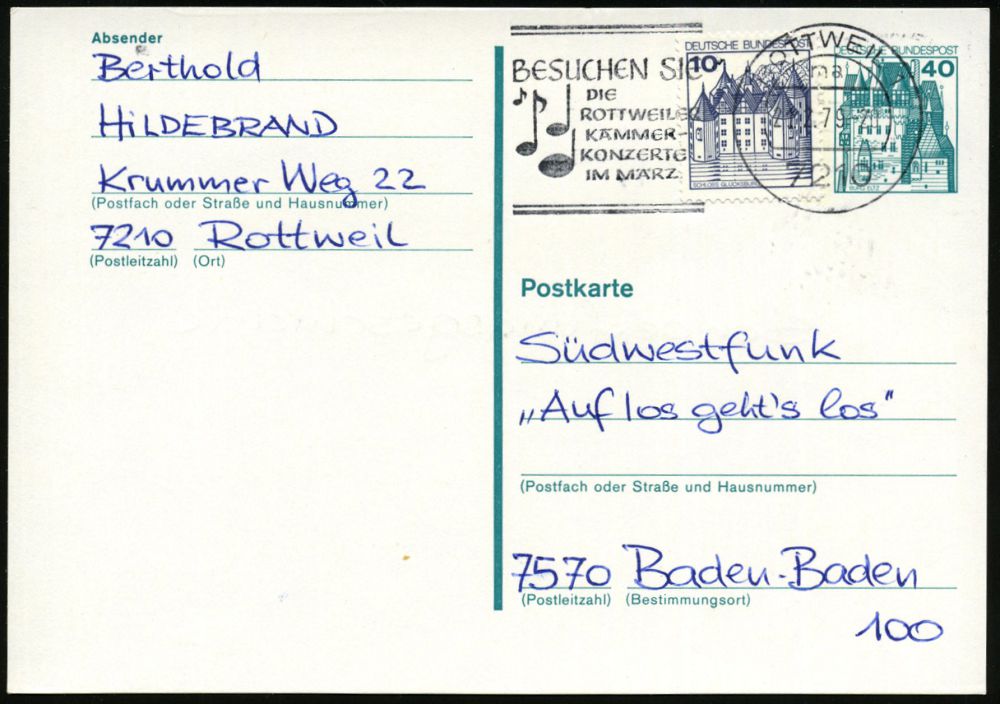 Absender
Berthold
HILDEBRAND
Krummer Weg 22
(Postfach oder Straße und Hausnummer)
7210 Rottweil
(Postleitzahl) (Ort)
BESUCHEN SIE
DIE
ROTTWEILER
KAMMER
KONZERTE
IM MÄRZ
DEUTSCHE BUNDESPOST
10
SCHLOSS GLÜCKSBURG
ROTTWEIL
7210
DEUTSCHE BUNDESPOST
40
BURG ELTZ
Postkarte
Südwestfunk
„Auf los geht's los"
(Postfach oder Straße und Hausnummer)
7570 Baden-Baden
(Postleitzahl) (Bestimmungsort)
100